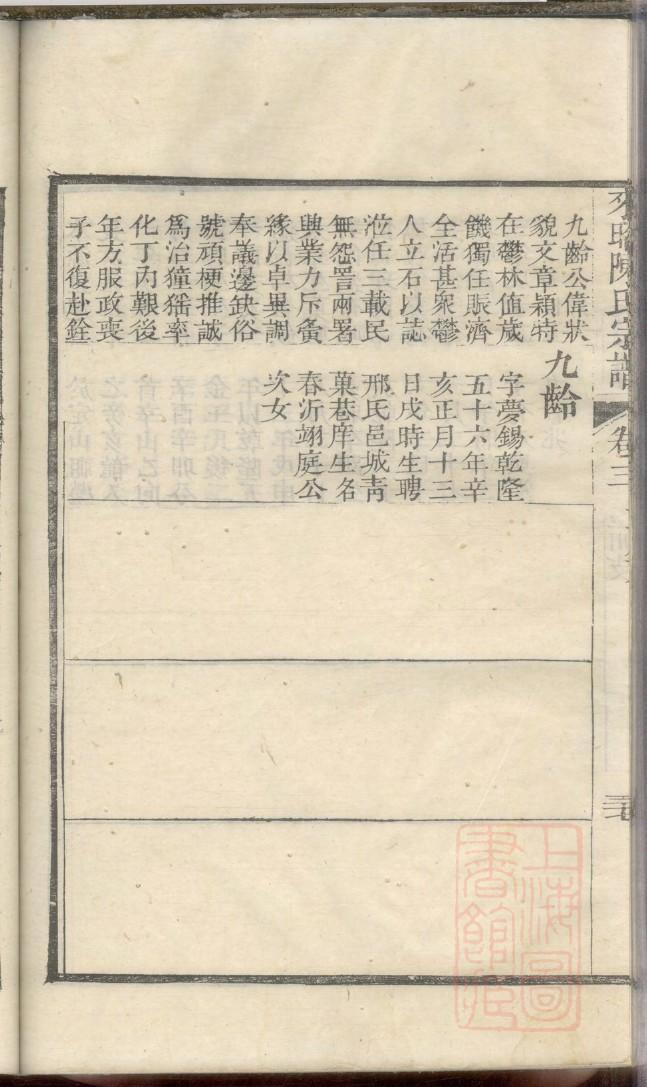 陳氏宗譜
卷三
九齡公偉狀
貌文章穎特
在鬱林值歲
饑獨任賑濟
全活甚衆鬱
人立石以誌
涖任三載民
無怨詈兩署
興業力斥夤
緣以卓異調
奉議邊缺俗
號頑梗推誠
爲治獞猺率
化丁內艱後
年方服政喪
子不復赴銓
九齡
字夢錫乾隆
五十六年辛
亥正月十三
日戌時生聘
邢氏邑城靑
菓巷庠生名
春沂翊庭公
次女
上海圖
書館藏